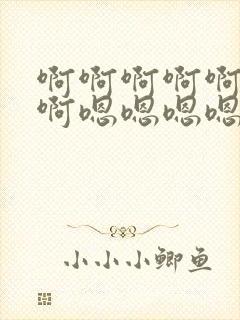 啊啊啊啊啊
啊嗯嗯嗯嗯
小小小鲫鱼